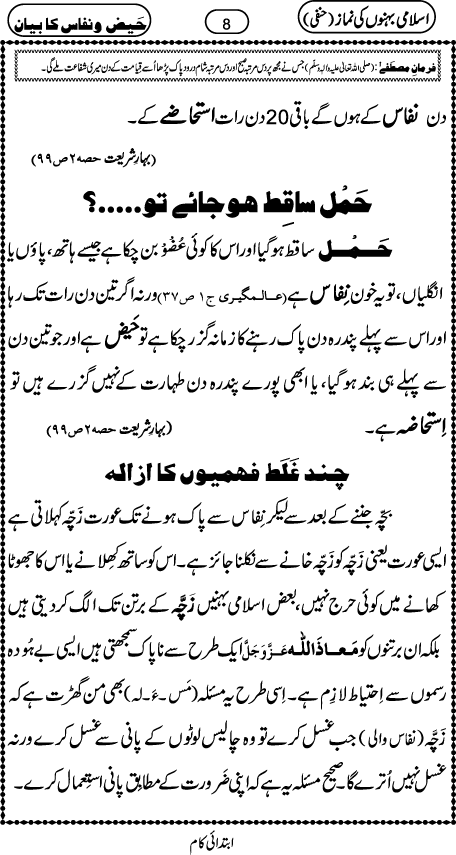 اسلامی بہنوں کی نماز (حنفی) 8 حَیض و نفاس کا بیان
فرمانِ مصطفےٰ: (صلی اللہ تعالیٰ علیہ والہٖ وسلم) جس نے مجھ پر دس مرتبہ صبح اور دس مرتبہ شام درود پاک پڑھا اُسے قیامت کے دن میری شفاعت ملے گی۔
دن نِفاس کے ہوں گے باقی 20 دن رات اِستحاضے کے۔
(بہارِ شریعت حصہ ۲ ص ۹۹)
حَمْل ساقِط ھو جائے تو.....؟
حَمْل ساقط ہو گیا اور اس کا کوئی عُضْوْ بن چکا ہے جیسے ہاتھ، پاؤں یا
انگلیاں، تو یہ خون نِفاس ہے (عالمگیری ج ۱ ص ۳۷) ورنہ اگر تین دن رات تک رہا
اور اس سے پہلے پندرہ دن پاک رہنے کا زمانہ گزر چکا ہے تو حَیض ہے اور جو تین دن
سے پہلے ہی بند ہو گیا، یا ابھی پورے پندرہ دن طہارت کے نہیں گزرے ہیں تو
اِستحاضہ ہے۔ (بہارِ شریعت حصہ ۲ ص ۹۹)
چند غَلَط فہمیوں کا ازالہ
بچّہ جننے کے بعد سے لیکر نِفاس سے پاک ہونے تک عورت زَچّہ کہلاتی ہے
ایسی عورت یعنی زَچّہ کو زَچّہ خانے سے نکلنا جائز ہے۔ اس کو ساتھ کِھلانے یا اس کا جھوٹا
کھانے میں کوئی حرج نہیں، بعض اسلامی بہنیں زَچَّہ کے برتن تک الگ کر دیتی ہیں
بلکہ ان برتنوں کو مَعاذَ اللّٰہ عَزَّوَجَلَّ ایک طرح سے ناپاک سمجھتی ہیں ایسی بے ہُودہ
رسموں سے اِحتیاط لازِم ہے۔ اِسی طرح یہ مسئلہ (مَس۔ءَ۔لہ) بھی من گھڑت ہے کہ
زَچّہ (نفاس والی) جب غسل کرے تو وہ چالیس لوٹوں کے پانی سے غسل کرے ورنہ
غسل نہیں اُترے گا۔ صحیح مسئلہ یہ ہے کہ اپنی ضَرورت کے مطابِق پانی استِعمال کرے۔
ابتدائی کام